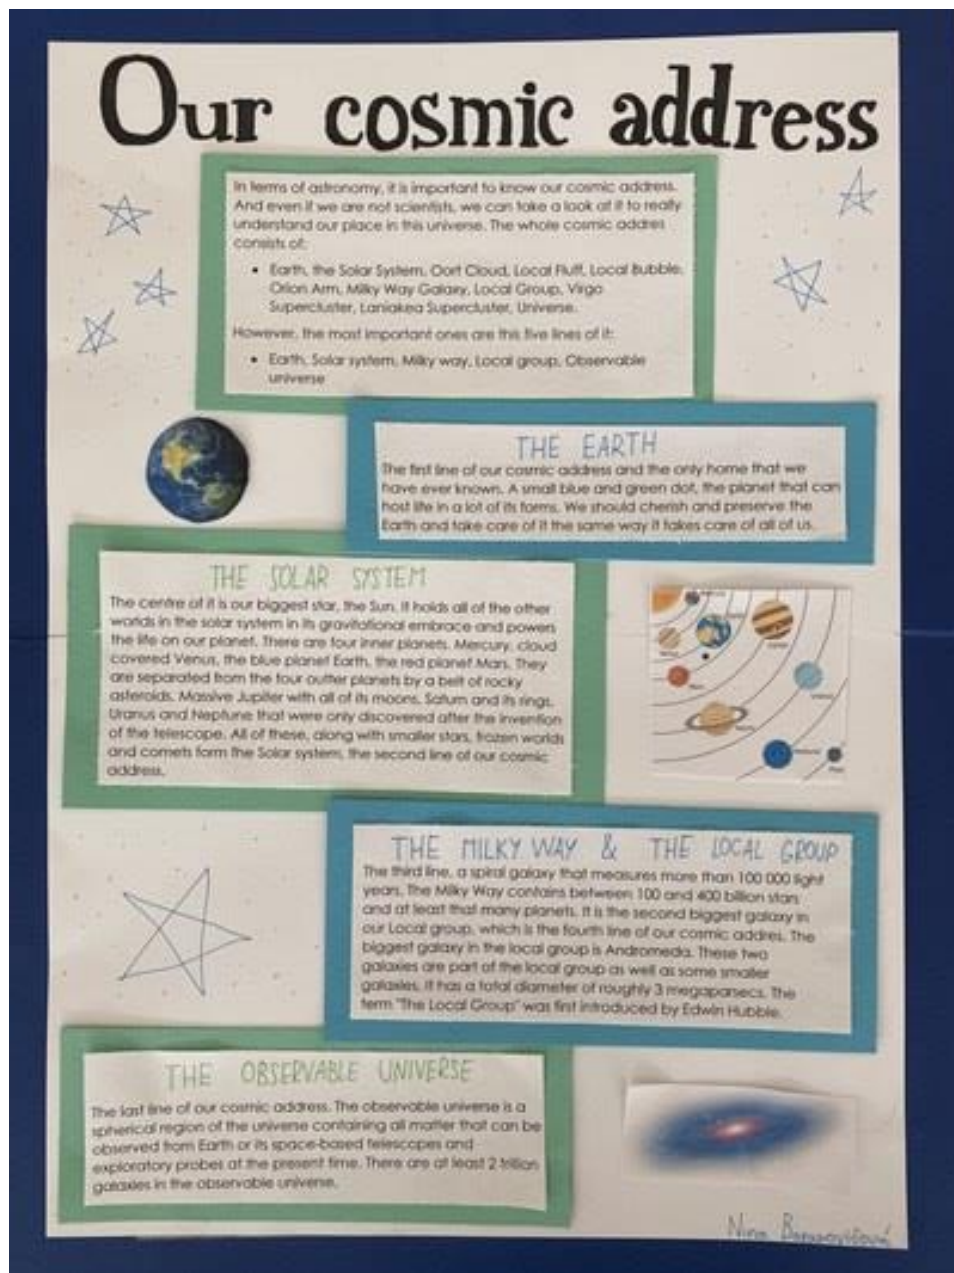 Our cosmic address
In terms of astronomy, it is important to know our cosmic address.
And even if we are not scientists, we can take a look at it to really
understand our place in this universe. The whole cosmic addres
consists of:
• Earth, the Solar System, Oort Cloud, Local Fluff, Local Bubble,
Orion Arm, Milky Way Galaxy, Local Group, Virgo
Supercluster, Laniakea Supercluster, Universe.
However, the most important ones are this five lines of it:
• Earth, Solar system, Milky way, Local group, Observable
universe
THE EARTH
The first line of our cosmic address and the only home that we
have ever known. A small blue and green dot, the planet that can
host life in a lot of its forms. We should cherish and preserve the
Earth and take care of it the same way it takes care of all of us.
THE SOLAR SYSTEM
The centre of it is our biggest star, the Sun. It holds all of the other
worlds in the solar system in its gravitational embrace and powers
the life on our planet. There are four inner planets, Mercury, cloud
covered Venus, the blue planet Earth, the red planet Mars. They
are separated from the four outter planets by a belt of rocky
asteroids. Massive Jupiter with all of its moons, Saturn and its rings,
Uranus and Neptune that were only discovered after the invention
of the telescope. All of these, along with smaller stars, frozen worlds
and comets form the Solar system, the second line of our cosmic
address.
THE MILKY WAY & THE LOCAL GROUP
The third line, a spiral galaxy that measures more than 100 000 light
years. The Milky Way contains between 100 and 400 billion stars
and at least that many planets. It is the second biggest galaxy in
our Local group, which is the fourth line of our cosmic addres. The
biggest galaxy in the local group is Andromeda. These two
galaxies are part of the local group as well as some smaller
galaxies. It has a total diameter of roughly 3 megaparsecs. The
term "The Local Group" was first introduced by Edwin Hubble.
THE OBSERVABLE UNIVERSE
The last line of our cosmic address. The observable universe is a
spherical region of the universe containing all matter that can be
observed from Earth or its space-based telescopes and
exploratory probes at the present time. There are at least 2 trillion
galaxies in the observable universe.
Nina